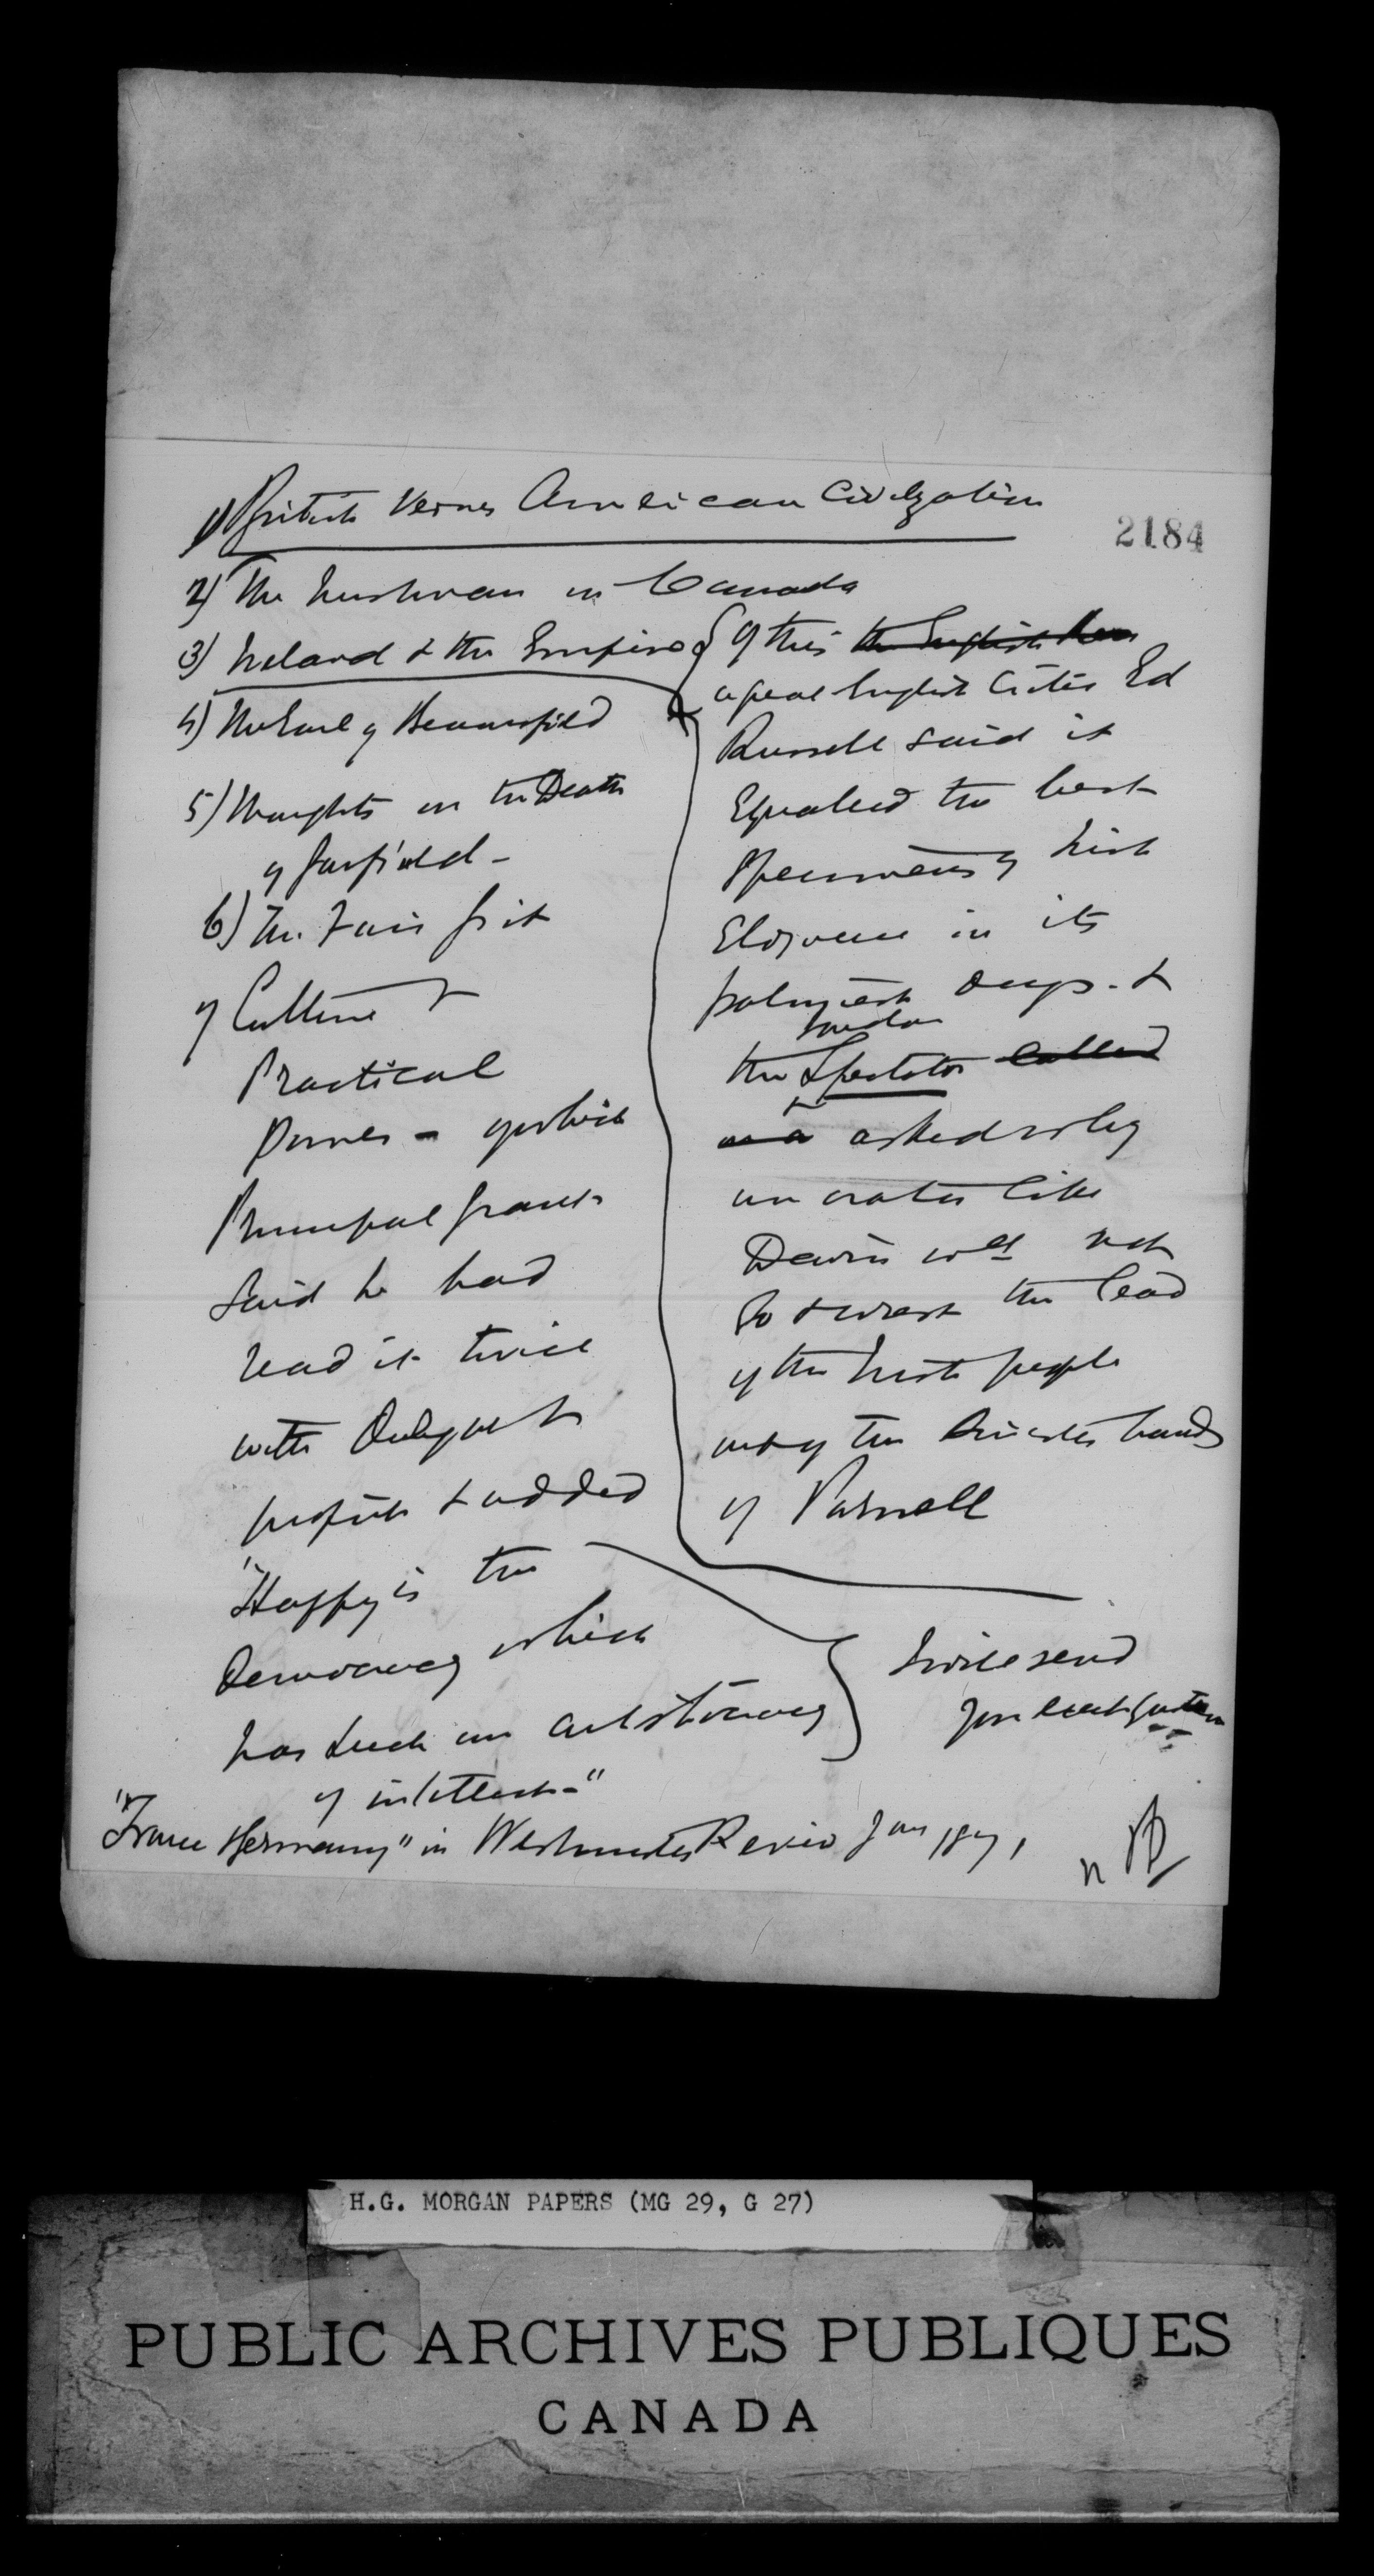 1) British Versus American Civilzation
2184
2) The Irishman in Canada
3) Ireland & the Empire
4) The Earl of Beaconsfield
5) Thoughts on the Death
of Garfield -
6) The Fair Grit
7 Culture &
Practical
Power - of which
Principal Grant
said he had
read it twice
with
profit & added
"Happy is the
Democracy which
has such an aristocracy
of intellect -"
Of this the English
a great English Critic Ed
Russell said it
Equalled the best
specimens of Irish
Eloquence in its
palmiest days - &
London
the Spectator called
as a asked why
an orator like
Davin wd not
go & wrest the lead
of the Irish people
out of the sinister hands
of Parnell
I will send
you
"France & Germany" in Westminster Review Jan 187
H.G. MORGAN PAPERS (MG 29, G 27)
PUBLIC ARCHIVES PUBLIQUES
CANADA